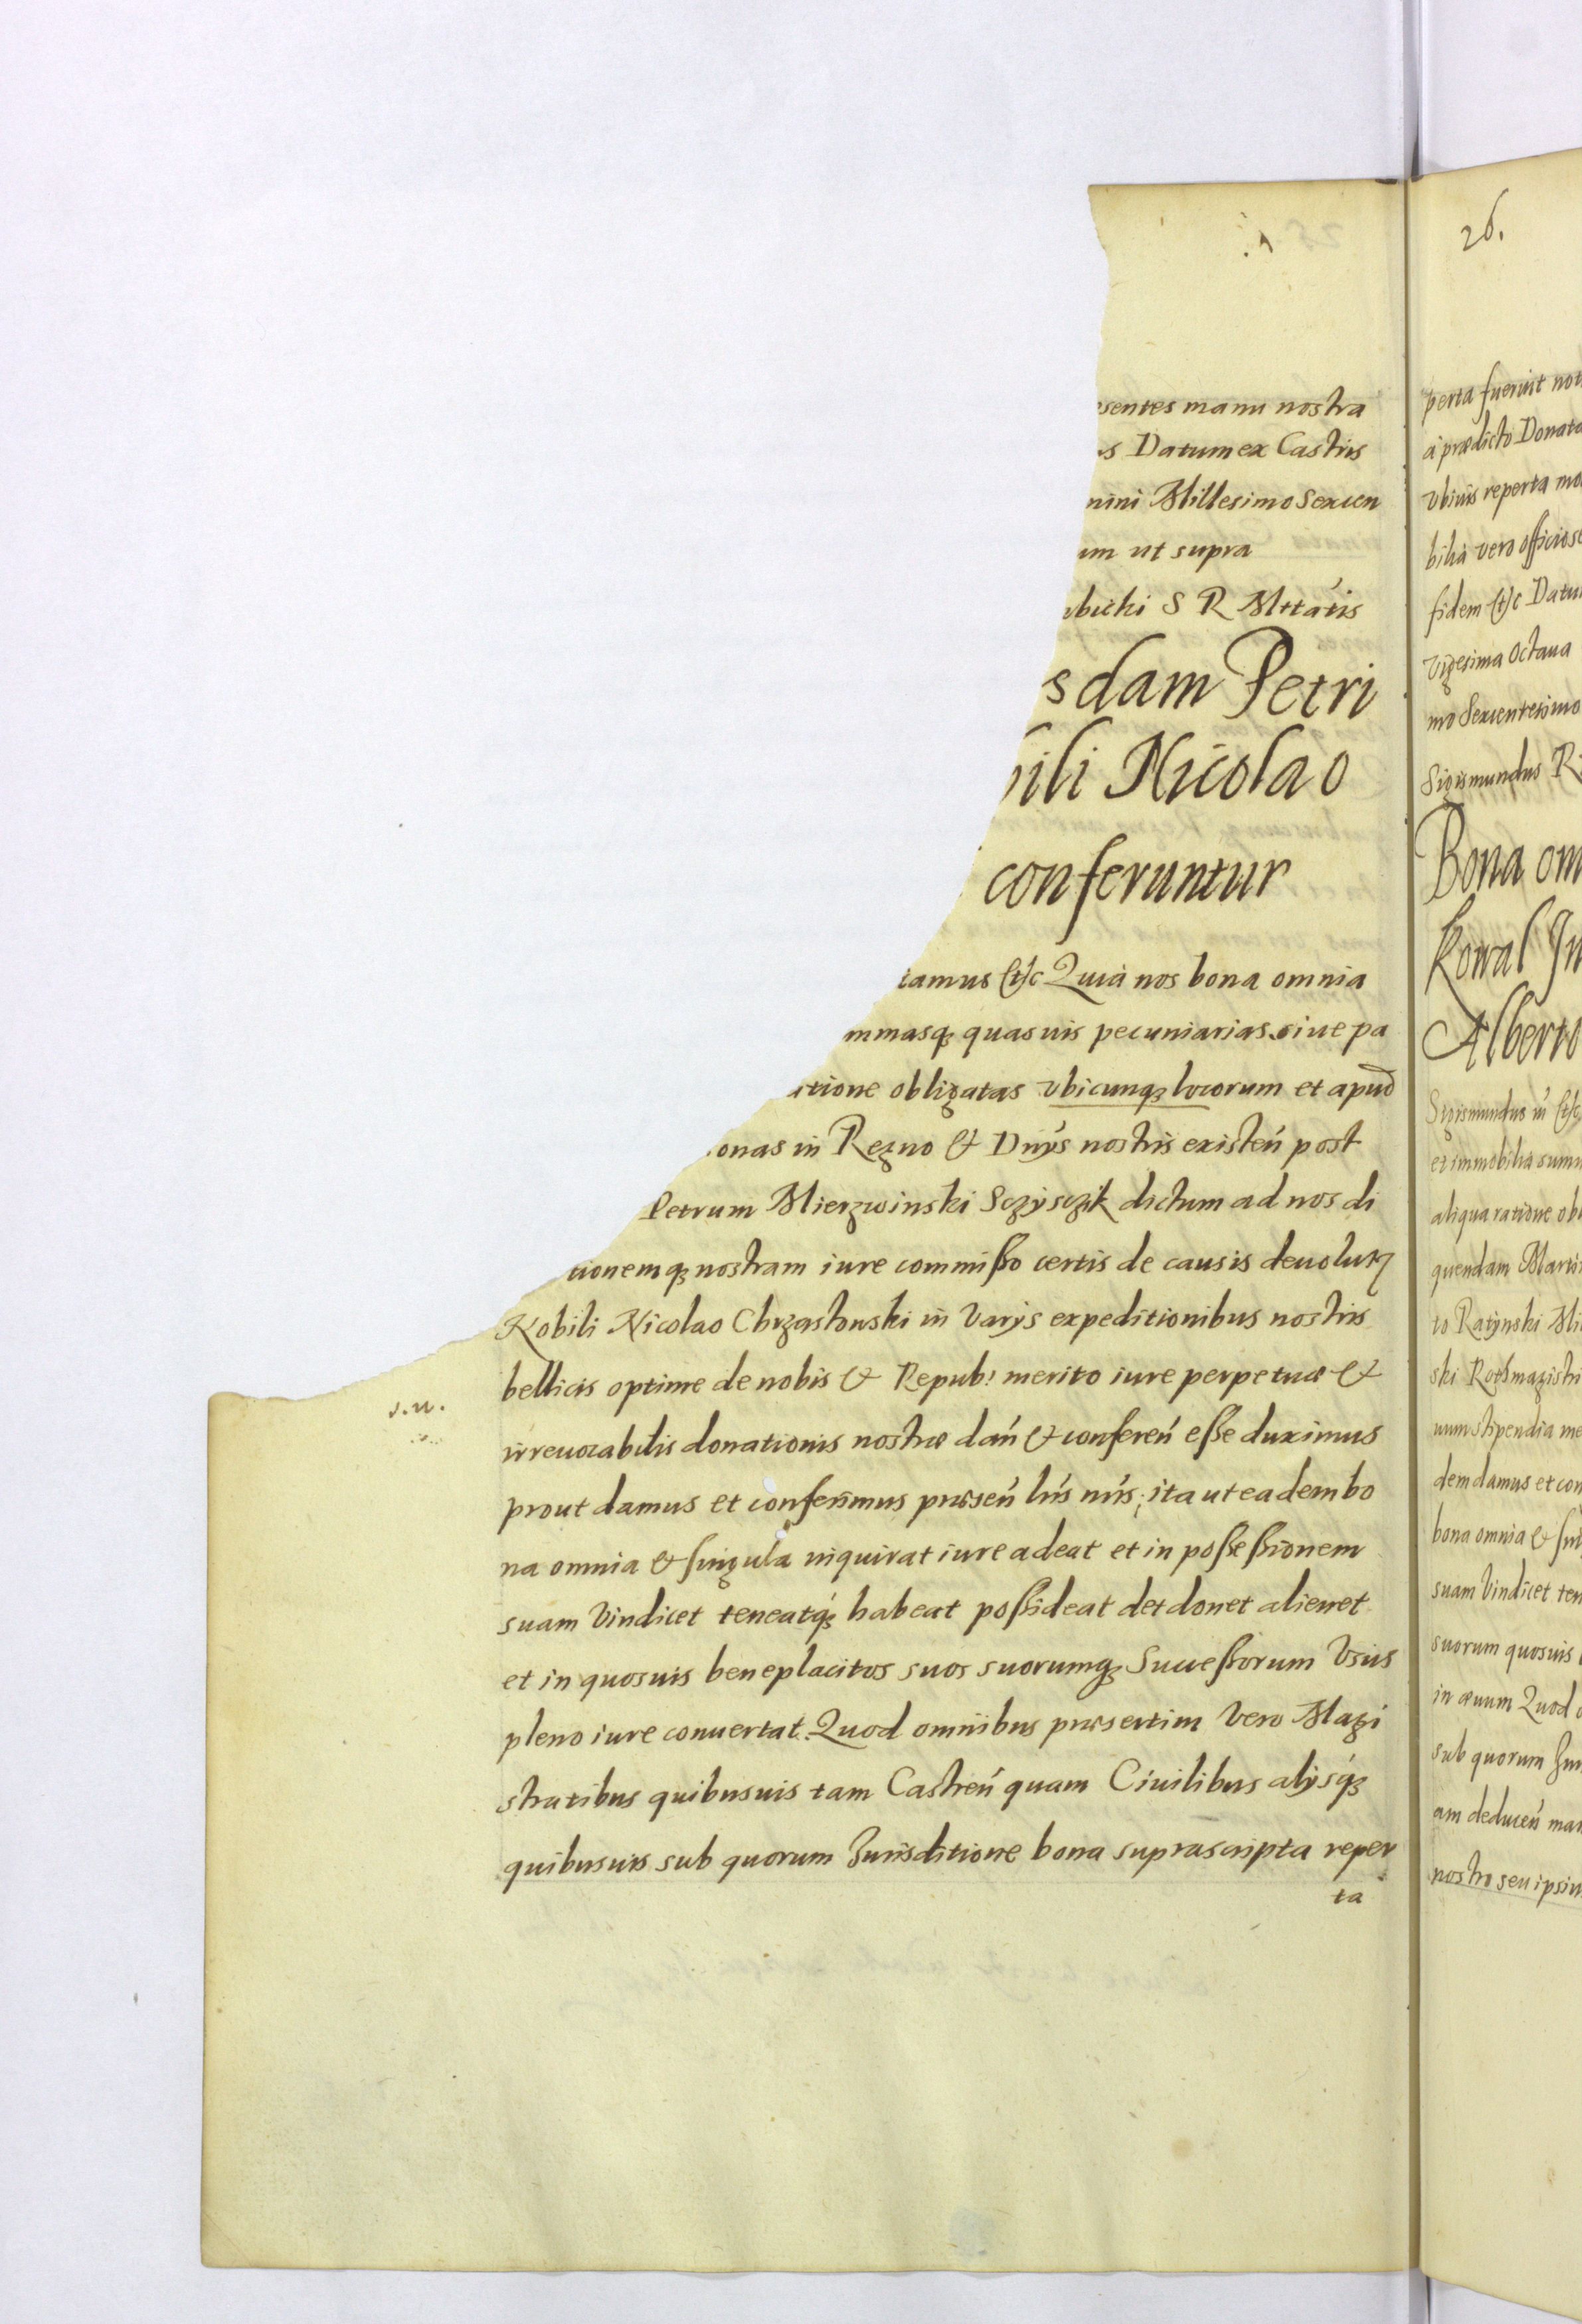 esentes manu nostra
s Datum ex Castris
nini Millesimo Sexcen
um ut supra
bicki S R Mttatis
sdam Petri
bili Nicolao
conferuntur
tamus etc Quia nos bona omnia
mmasq quasuis pecuniarias siue pa
atione obligatas vbicunq locorum et apud
onas in Regno & Dnijs nostris existen post
Petrum Mierzwinski Sczysczik dictum ad nos di
tionemq nostram iure commisso certis de causis deuolut
Nobili Nicolao Chrzastowski in Varijs expeditionibus nostris
s.n.
bellicis optime de nobis & Repub: merito iure perpetuæ &
irreuocabilis donationis nostræ dan & conferen esse duximus
prout damus et conferimus præsen lris nris, ita ut eadem bo
na omnia & singula inquirat iure adeat et in possessionem
suam Vindicet teneatq habeat possideat det donet alienet
et in quosuis beneplacitos suos suorumq Successorum Vsus
pleno iure conuertat. Quod omnibus præsertim Vero Magi
stratibus quibusuis tam Castren quam Ciuilibus alijsq
quibusuis sub quorum Jurisditione bona suprascripta reper
ta
26.
perta fuerint not
à prædicto Donata
vbiuis reperta mo
bilia vero officiose
fidem etc Datu
Vigesima Octaua
mo Sexcentesimo
Sigismundus R
Bona om
Kowal In
Alberto
Sigismundus iii etc
et immobilia sum
aliqua ratione ob
quendam Marti
to Ratynski Mi
ski Rothmagistri
num stipendia me
dem damus et con
bona omnia & sin
suam Vindicet ten
suorum quosuis
in æuum Quod o
sub quorum Jur
am deducen man
nostro seu ipsiu